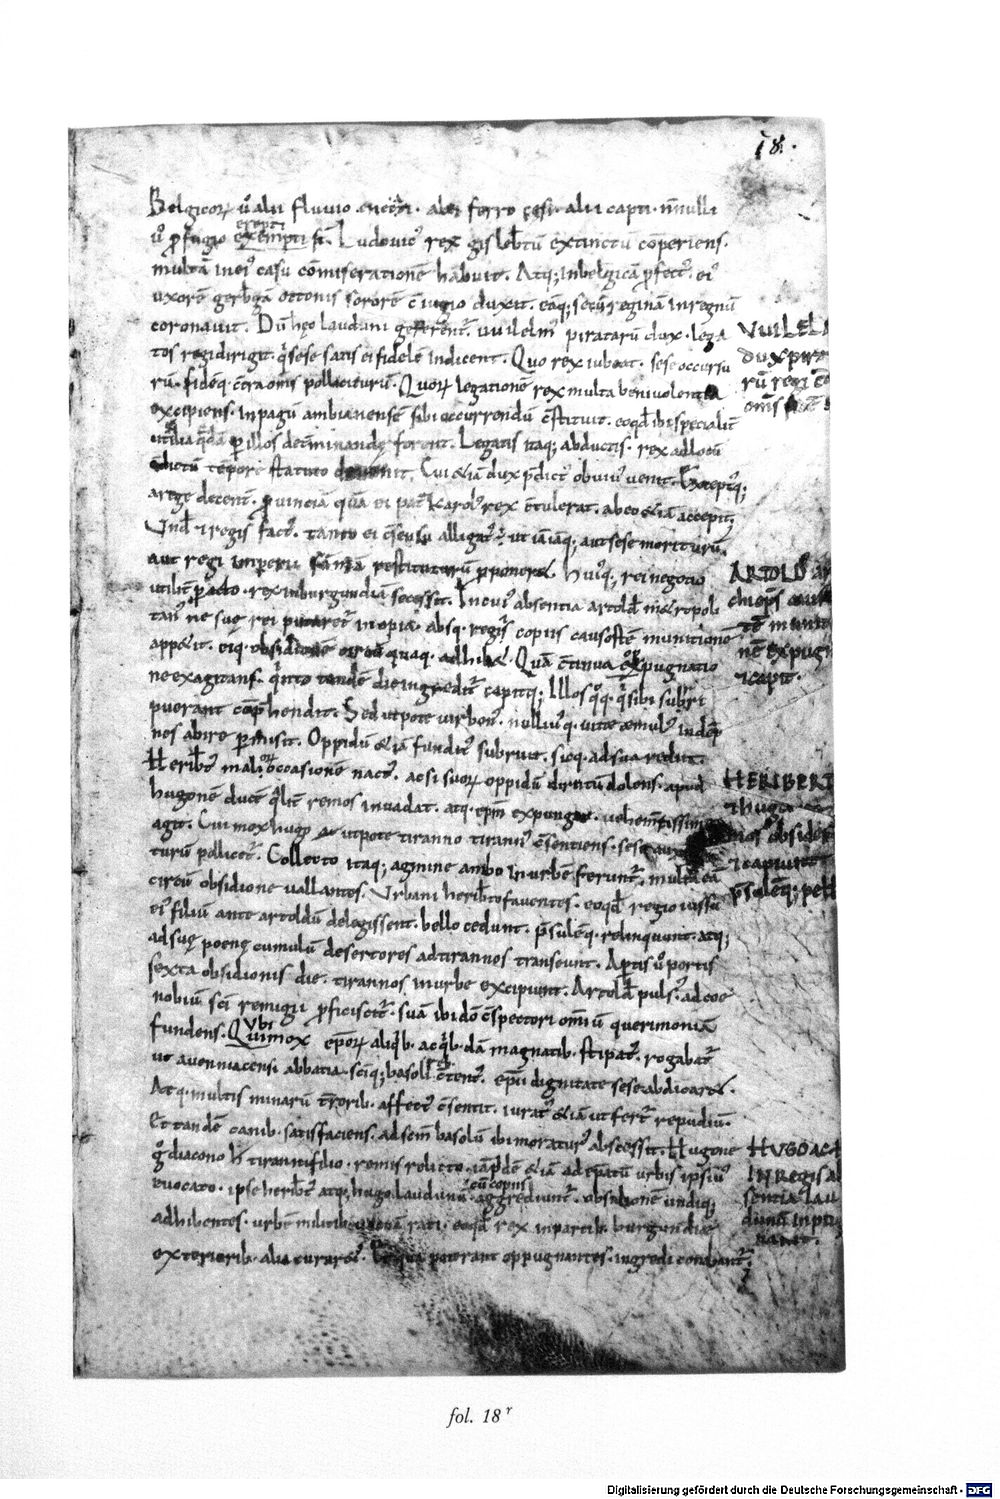 18.
Belgicoꝝ ů alii fluuio enecati. alii ferro cęsi. alii capti. nnulli
erepti
ů ꝓfugio exempti st̄. Ludouic' rex gislebtū extinctū coperiens.
multā in ei' casu cōmiserationē habuit. Atq; in belgicā ꝓfect'. ei'
uxorē gerbgā ottonis sororē c̄iugio duxit. eāq; secū reginā in regnū
coronauit. Dū hęc lauduni gererent'. uuilelm' piratarū dux. lega
tos regi dirigit. q̇ sese satis ei fidelē indicent. Quo rex iubeat. sese occursu
rū. fidēq. c̄tra oms̄ polliciturū. Quoꝝ legationē rex multa beniuolentia
excipiens. in pagū ambianensē sibi occurrendū c̄stituit. eoqd̄ ibi specialit̄
utilia q̇dā ꝑ illos det̄minandę forent. Legatis itaq; abductis. rex ad locū
edictū tēpore statuto deuenit. Cui & iā dux p̄dict' obuiu' uenit. Except'q;
a rege decent̄. ꝓuinciā quā ei pat̄ Karol' rex c̄tulerat. ab eo & iā accepit.
Und̄ & regis fact'. tanto ei c̄sensu alligat' ē. ut iā iāq; aut sese moriturū.
aut regi imperii summā restituturū ꝓponeret. Hui'q; rei negotio
utilit̄ ꝑacto. rex in burgundiā secessit. In cui' absentia artold' metropoli
tan' ne suę rei putaret' inopia. absq. regis copiis causostē munitionē
appetit. eiq. obsidionē circūquaq. adhibet. Quā c̄tinua expugnatio
ne exagitans. q̇nto tandē die ingredit' capitq; Illos q̊q. q̇ sibi subripi
puerant cōp̄hendit. Sed utpote uir bon'. nulli'q. uitae aemul' indēp
nes abire ꝑmisit. Oppidū & iā fundit' subruit. sicq. ad sua rediit.
Heribt' mali occasionē nact'. ac si suoꝝ oppidū dirutū dolens. apud
hugonē ducē q̇lit̄ remos inuadat. atq. epm̄ expungat. uehementissime
agit. Cui mox hugo utpote tiranno tirann' c̄sentiens. sese auxi
turū pollicet'. Collecto itaq; agmine ambo in urbē ferunt'. multa eā
circū obsidione uallantes. Urbani heribto fauentes. eoqd̄ regio iussu
ei' filiū ante artoldū delegissent. bello cedunt. p̄sulēq. relinquunt. atq;
ad suę poenę cumulū desertores ad tirannos transeunt. Aꝑtis ů portis
sexta obsidionis die. tirannos in urbe excipiunt. Artold' puls'. ad coe
nobiū sc̄i remigii ꝓficiscit'. suā ibi dō c̄spectori omiū querimoniā
Vbi
fundens. Qui mox epoꝝ aliq̇b. ac q̇b.dā magnatib. stipat'. rogabat'
ut auenniacensi abbatia. sc̄iq; basoli c̄tent'. epū dignitate sese abdicaret.
Atq. multis minarū t̄rorib. affect' c̄sentit. iurat' & iā ut fert' repudiū.
Et tandē canib. satisfaciens. ad scm̄ basolū ibi moratur' abscessit. Hugone
g° diacono h̄ tiranni filio. remis relicto. iā pridē & iā ad epatū urbis ipsiu'
cū copiis
euocato. ipse heribt' atq; hugo laudunū aggrediunt'. obsidionē undiq;
adhibentes. urbē militib. uacuā rati. eoqd̄ rex in partib. burgundiae
exteriorib. alia curaret. Et qua poterant oppugnantes. ingredi conabant'.
VUILEL
dux pira
rū regi c̄
oms̄
ARTOLD' ar
chieps
tē muniti
nē expug
& capit.
HERIBERT
& hugo
mos obside
& capiunt
p̄sulēq; pell
HUGO AC
IN REgis ab
sentia lau
dunū inpu
nant.
fol. 18ʳ
Digitalisierung gefördert durch die Deutsche Forschungsgemeinschaft - DFG